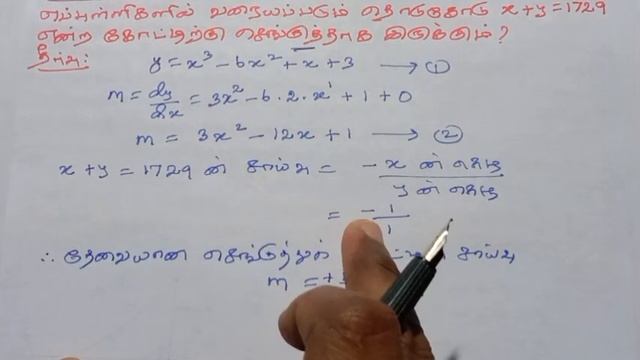 எப்புள்ளிகளில் வரையப்படும் தொடுகோடு x+y=1729
என்ற கோட்டிற்கு செங்குத்தாக இருக்கும்?
தீர்வு:
y = x³ - 6x² + x + 3 → ①
m = dy/dx = 3x² - 6.2.x¹ + 1 + 0
m = 3x² - 12x + 1 → ②
x + y = 1729 ன் சாய்வு = - x ன் கெழு / y ன் கெழு
= - 1/1
∴ தேவையான செங்குத்துக் சாய்வு
m = +